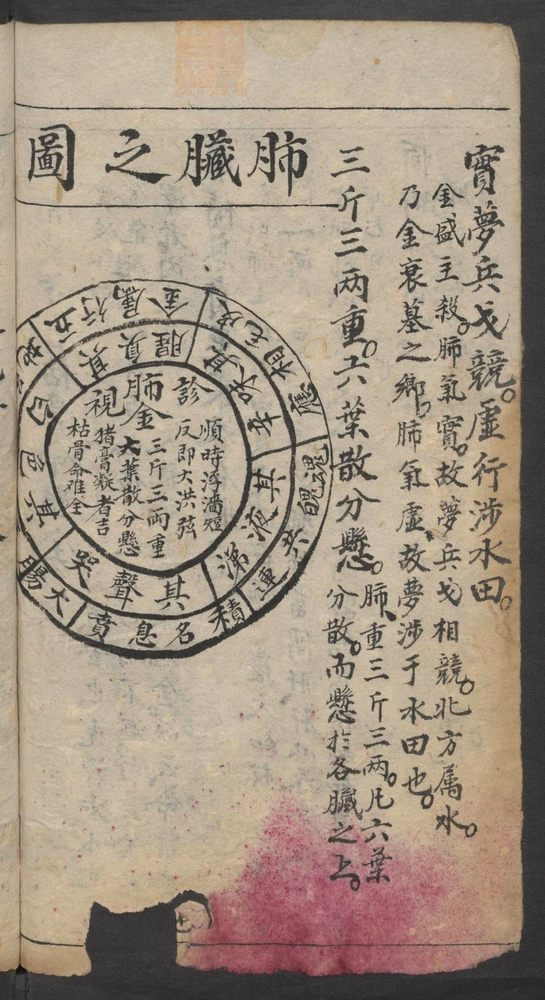 實夢兵戈競。虛行涉水田。
金盛主殺。肺氣實。故夢兵戈相競。北方屬水。
乃金衰墓之鄉。肺氣虛。故夢涉于水田也。
三斤三两重。六葉散分懸。
肺重三斤三两。凡六葉
分散。而懸於各臟之上。
肺臟之圖
診
順時浮濇短
反即大洪弦
肺金
三斤三两重
大葉散分懸
視
猪膏凝者吉
枯骨命难全
其臭腥
其味辛
其液涕
其聲哭
其色白
五行屬金
魂魄
積名息賁
大腸